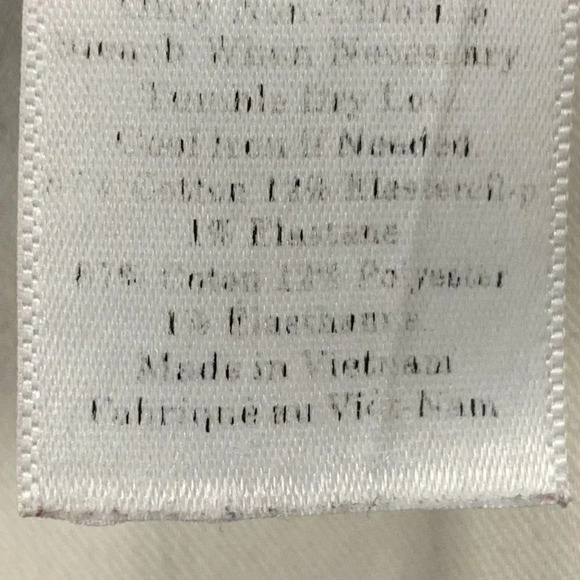 Only Non-Chlorine
Bleach When Necessary
Tumble Dry Low
Cool Iron If Needed
87% Cotton 12% Elasterell-p
1% Elastane
87% Coton 12% Polyester
1% Elasthanne
Made in Vietnam
Fabriqué au Viêt-Nam